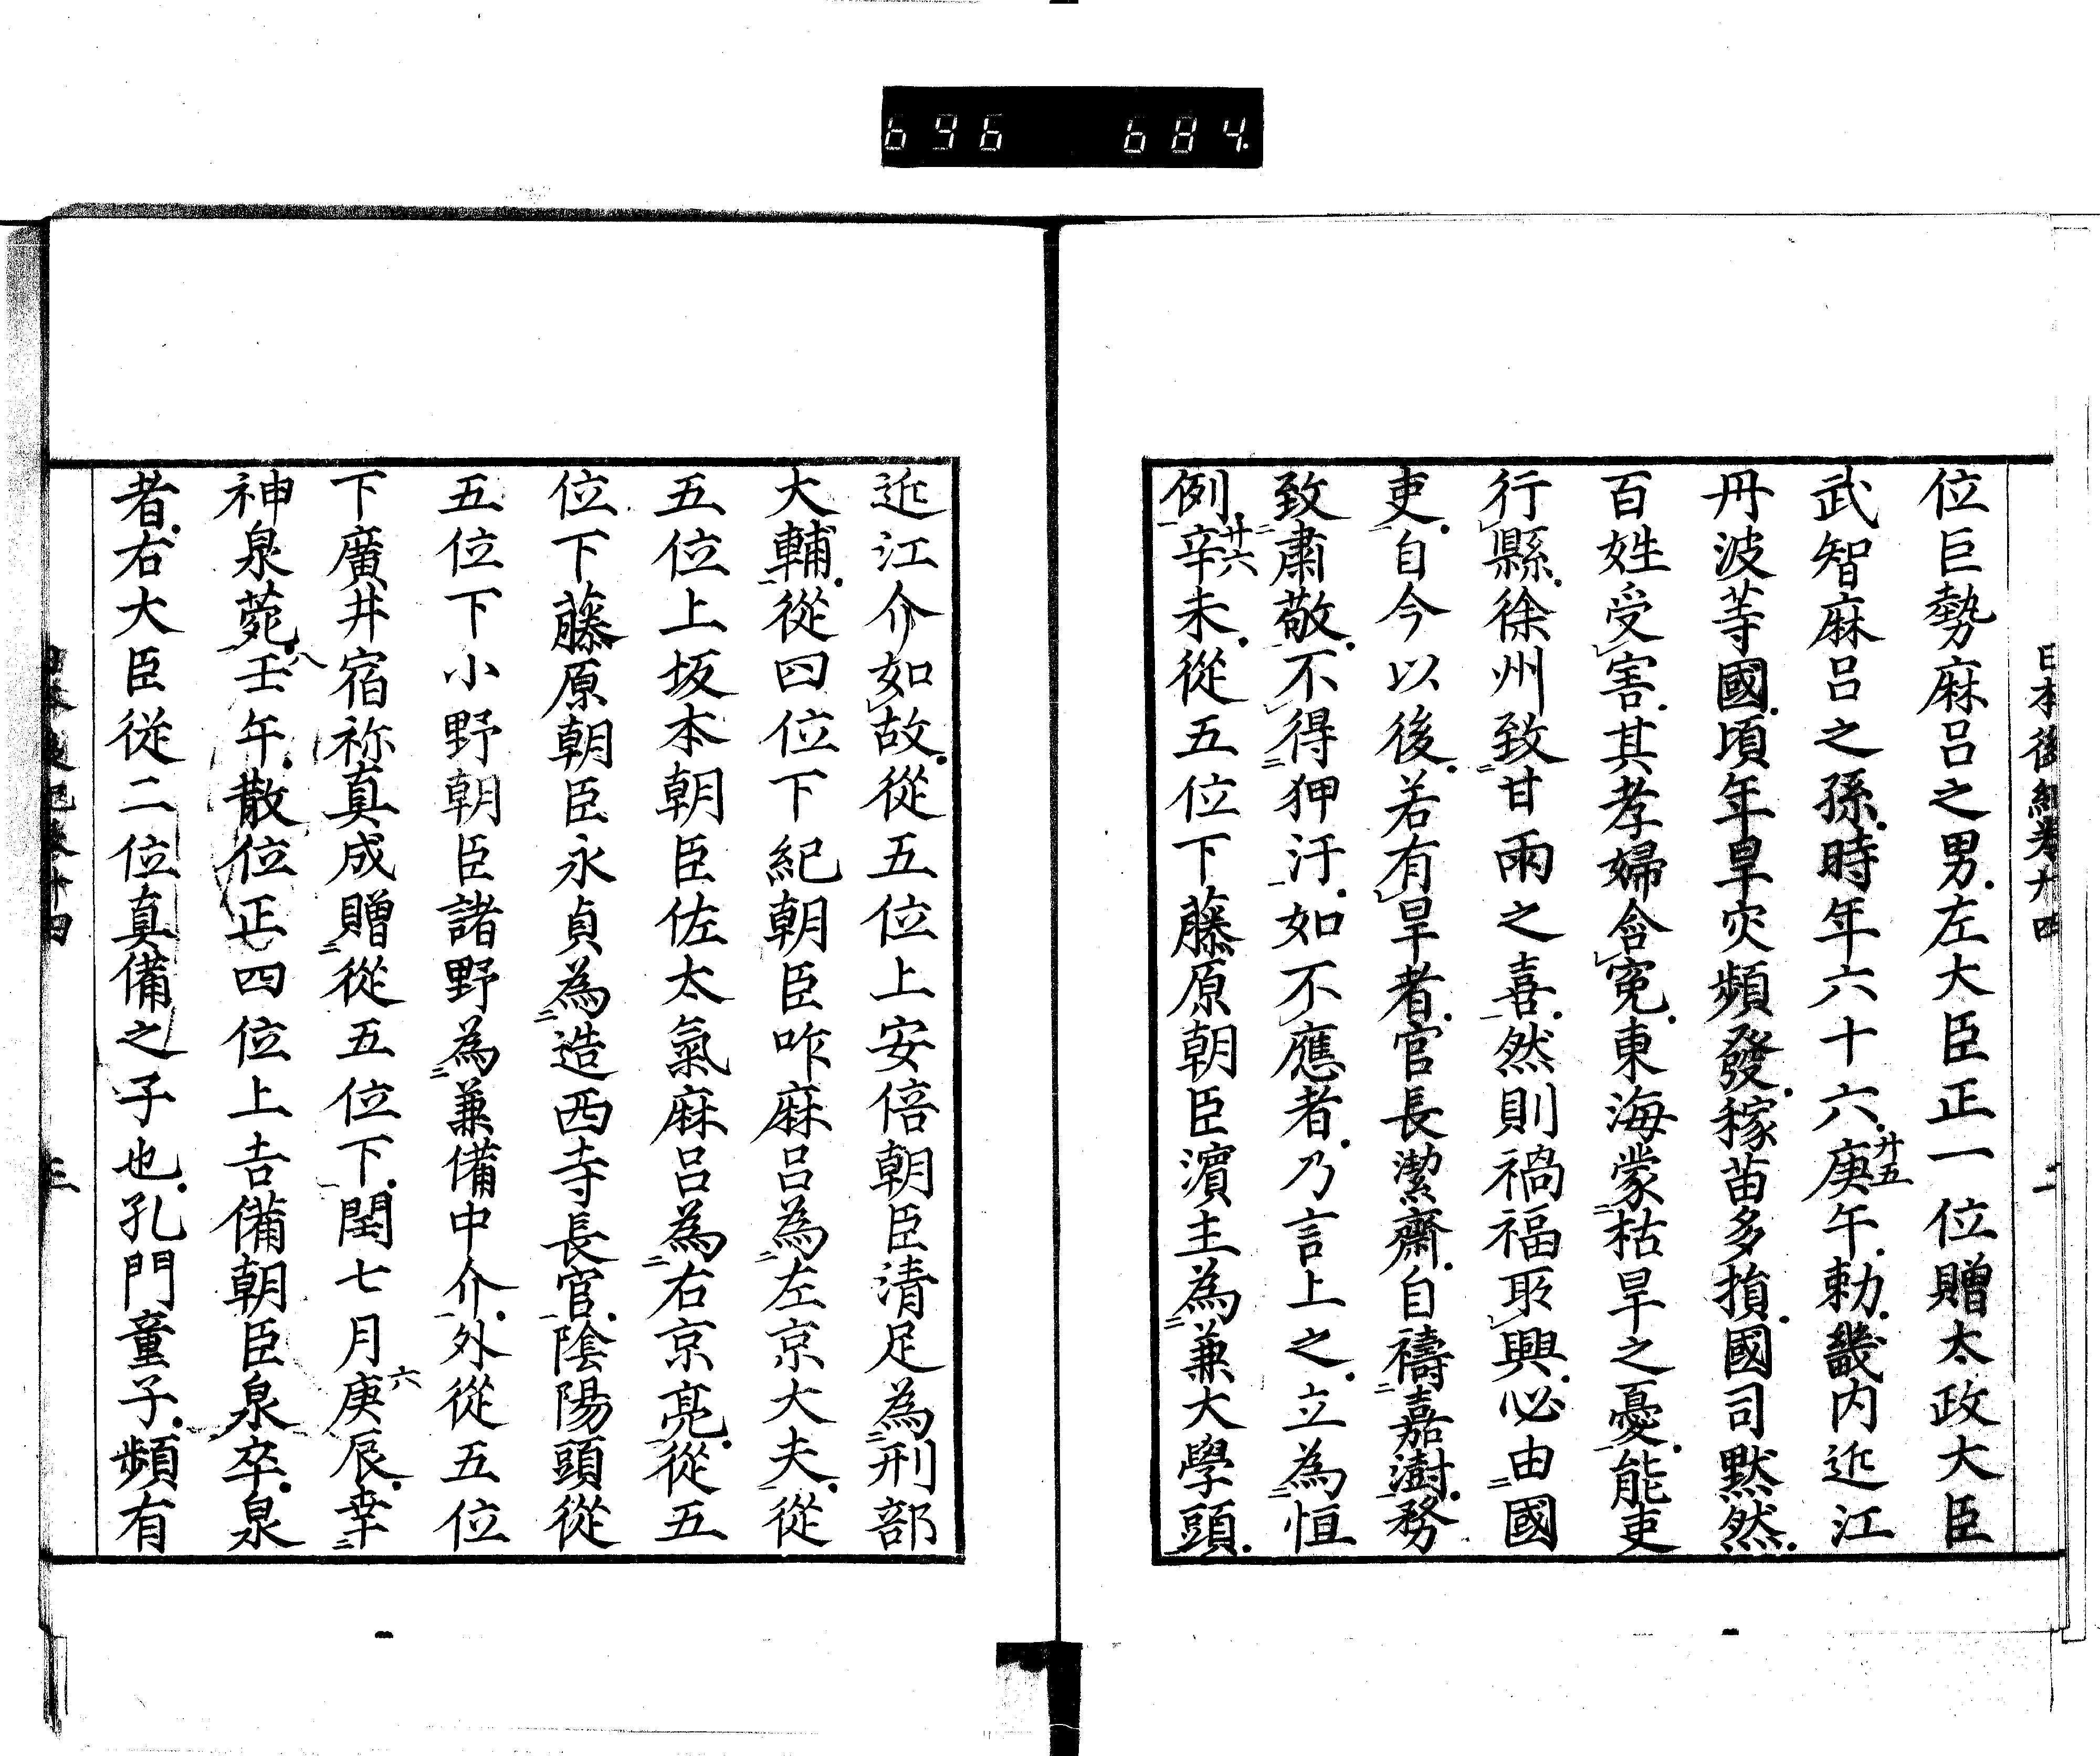 696 684.
日本後紀卷十四 二
位巨勢麻呂之男。左大臣正一位贈太政大臣
武智麻呂之孫。時年六十六。廿五庚午。勅。畿内近江
丹波等國。頃年旱灾頻發。稼苗多損。國司黙然。
百姓受害。其孝婦含寃。東海蒙枯旱之憂。能吏
行縣。徐州致甘雨之喜。然則禍福所興。必由國
吏。自今以後。若有旱者。官長潔齋。自禱嘉澍。務
致肅敬。不得狎汙。如不應者。乃言上之。立為恒
例。廿六辛未。從五位下藤原朝臣濵主為兼大學頭。
近江介如故。從五位上安倍朝臣清足為刑部
大輔。從四位下紀朝臣咋麻呂為左京大夫。從
五位上坂本朝臣佐太氣麻呂為右京亮。從五
位下藤原朝臣永貞為造西寺長官。陰陽頭從
五位下小野朝臣諸野為兼備中介。外從五位
下廣井宿祢真成贈從五位下。閏七月六庚辰。幸
神泉苑。八壬午。散位正四位上吉備朝臣泉卒。泉
者。右大臣從二位真備之子也。孔門童子。頻有
日本後紀卷十四 三